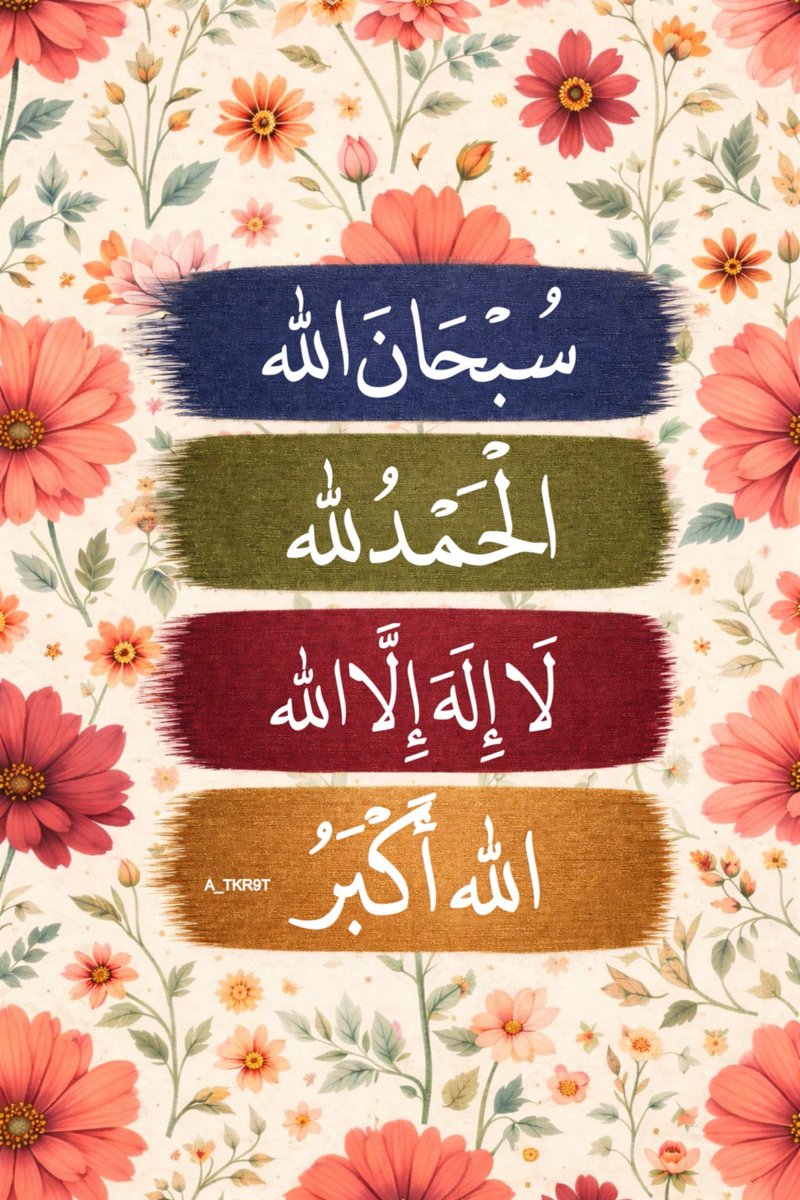 سُبْحَانَ الله
الْحَمْدُ لله
لَا إِلَهَ إِلَّا الله
الله أَكْبَرُ
A_TKR9T